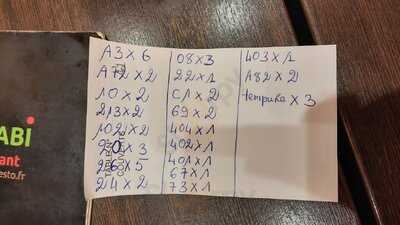 A3 x 6
A72 x 2
10 x 2
213 x 2
102 x 2
90 x 3
26 x 5
24 x 2
08 x 3
22 x 1
C1 x 2
69 x 2
404 x 1
402 x 1
401 x 1
67 x 1
73 x 1
403 x 1
A82 x 2
tempura x 3
ABI
ant
esto.fr